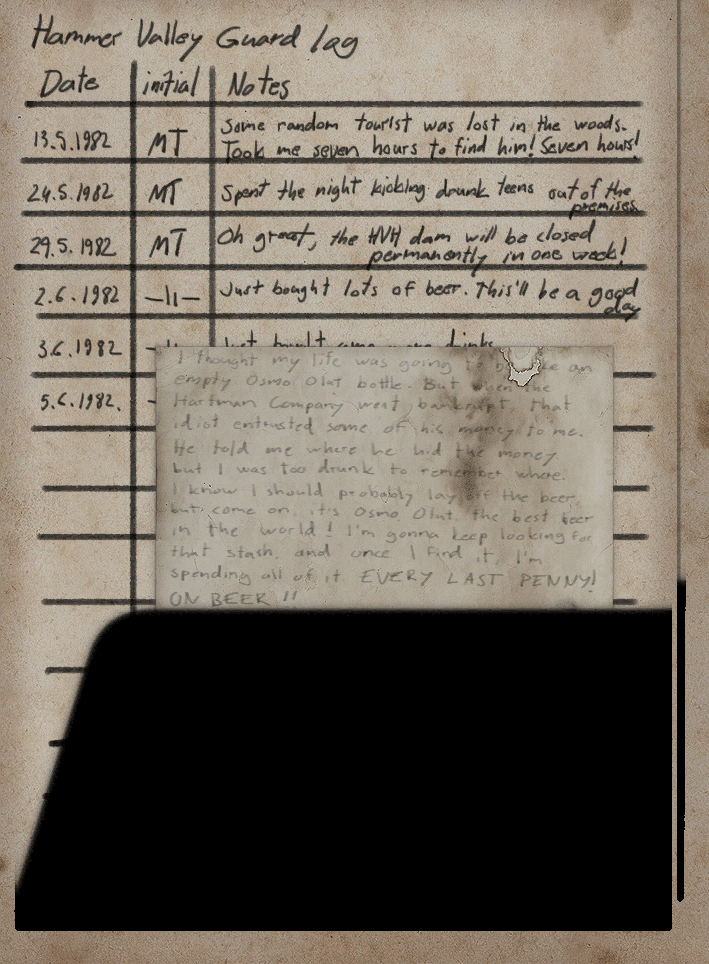 Hammer Valley Guard log
Date initial Notes
13.5.1982 MT Some random tourist was lost in the woods.
Took me seven hours to find him! Seven hours!
24.5.1982 MT Spent the night kicking drunk teens out of the
premises.
29.5.1982 MT Oh great, the HVH dam will be closed
permanently in one week!
2.6.1982 —||— Just bought lots of beer. This'll be a good
day
3.6.1982 Just drinks
5.6.1982.
I thought my life was going to be like an
empty Osmo Olut bottle. But when the
Hartman Company went bankrupt, that
idiot entrusted some of his money to me.
He told me where he hid the money
but I was too drunk to remember where.
I know I should probably lay off the beer,
but come on, it's Osmo Olut, the best beer
in the world! I'm gonna keep looking for
that stash, and once I find it, I'm
spending all of it EVERY LAST PENNY!
ON BEER !!